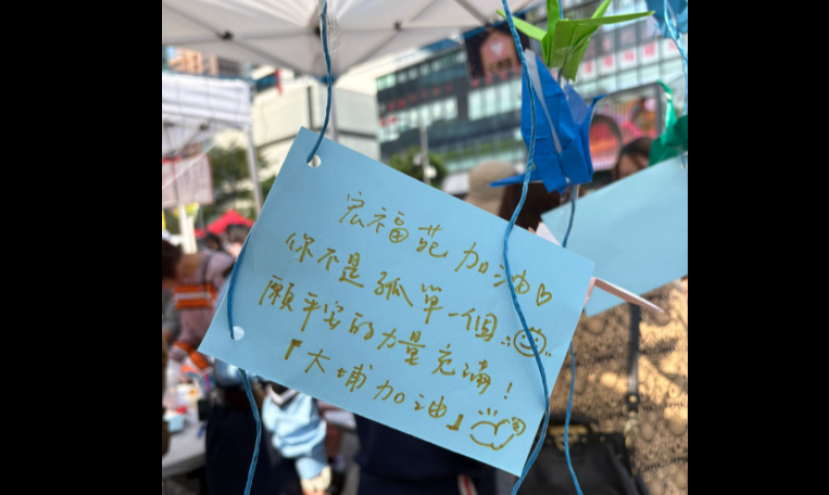 宏福苑加油♡
你不是孤單一個
願平安的力量充滿!
『大埔加油』